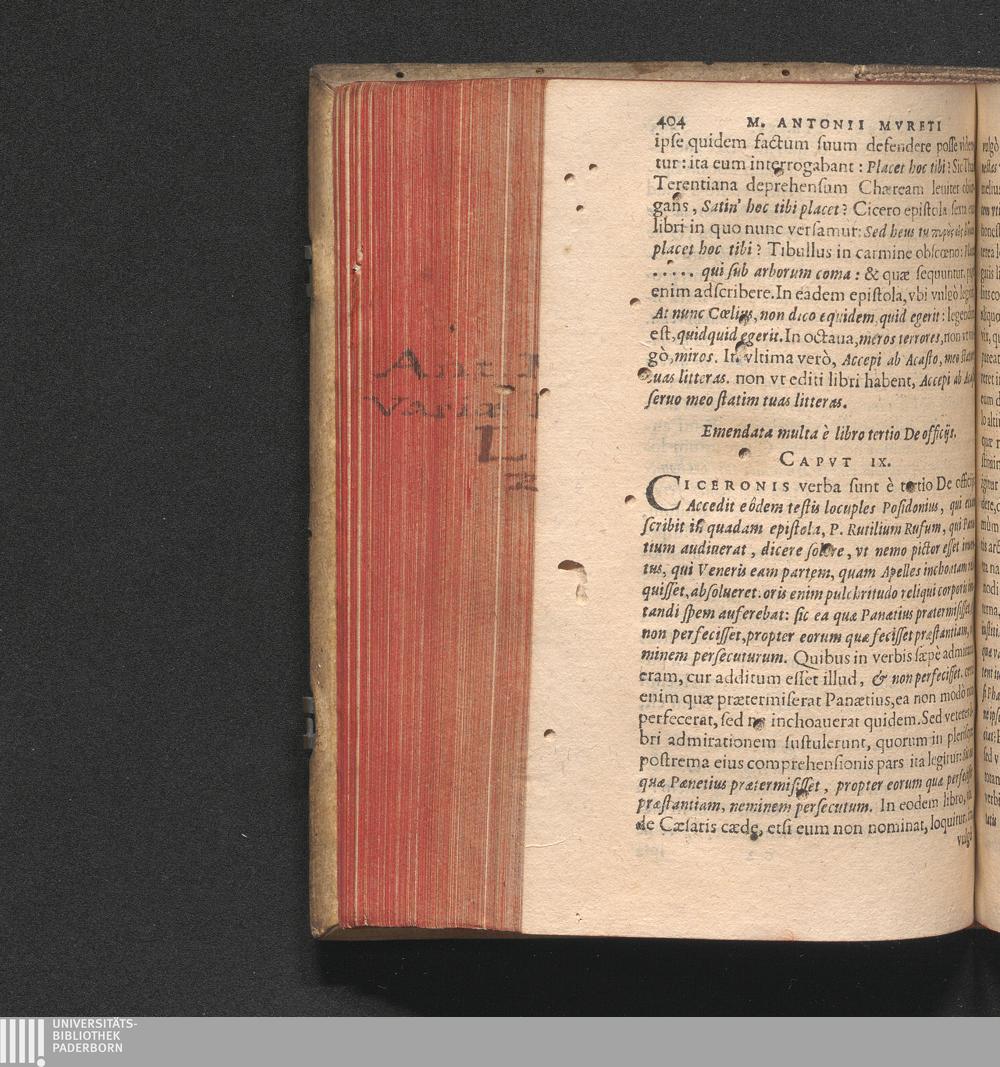 404 M. ANTONII MVRETI
ipse quidem factum suum defendere posse
tur: ita eum interrogabant: Placet hoc tibi? Sic
Terentiana deprehensum Chæream leuiter
gans, Satin' hoc tibi placet? Cicero epistola sexta
libri in quo nunc versamur: Sed heus tu
placet hoc tibi? Tibullus in carmine obscœno:
..... qui sub arborum coma: & quæ sequuntur,
enim adscribere. In eadem epistola, vbi vulgò
At nunc Cœlius, non dico equidem, quid egerit:
est, quidquid egerit. In octaua, meros terrores, non vt
gò, miros. In vltima verò, Accepi ab Acasto, meo
tuas litteras. non vt editi libri habent, Accepi ab
seruo meo statim tuas litteras.
Emendata multa è libro tertio De officijs.
CAPVT IX.
CICERONIS verba sunt è tertio De
Accedit eôdem testis locuples Posidonius, qui
scribit in quadam epistola, P. Rutilium Rufum, qui
tium audiuerat, dicere solere, vt nemo pictor esset
tus, qui Veneris eam partem, quam Apelles
quisset, absolueret: oris enim pulchritudo reliqui corporis
tandi spem auferebat: sic ea quæ Panætius prætermisisset,
non perfecisset, propter eorum quæ fecisset præstantiam,
minem persecuturum. Quibus in verbis sæpè
eram, cur additum esset illud, & non perfecisset.
enim quæ prætermiserat Panætius, ea non modò
perfecerat, sed ne inchoauerat quidem. Sed veteres
bri admirationem sustulerunt, quorum in
postrema eius comprehensionis pars ita legitur:
quæ Panetius prætermisisset, propter eorum quæ
præstantiam, neminem persecutum. In eodem libro,
de Cæsaris cæde, etsi eum non nominat, loquitur,
Ant
Variæ
L
UNIVERSITÄTS-
BIBLIOTHEK
PADERBORN